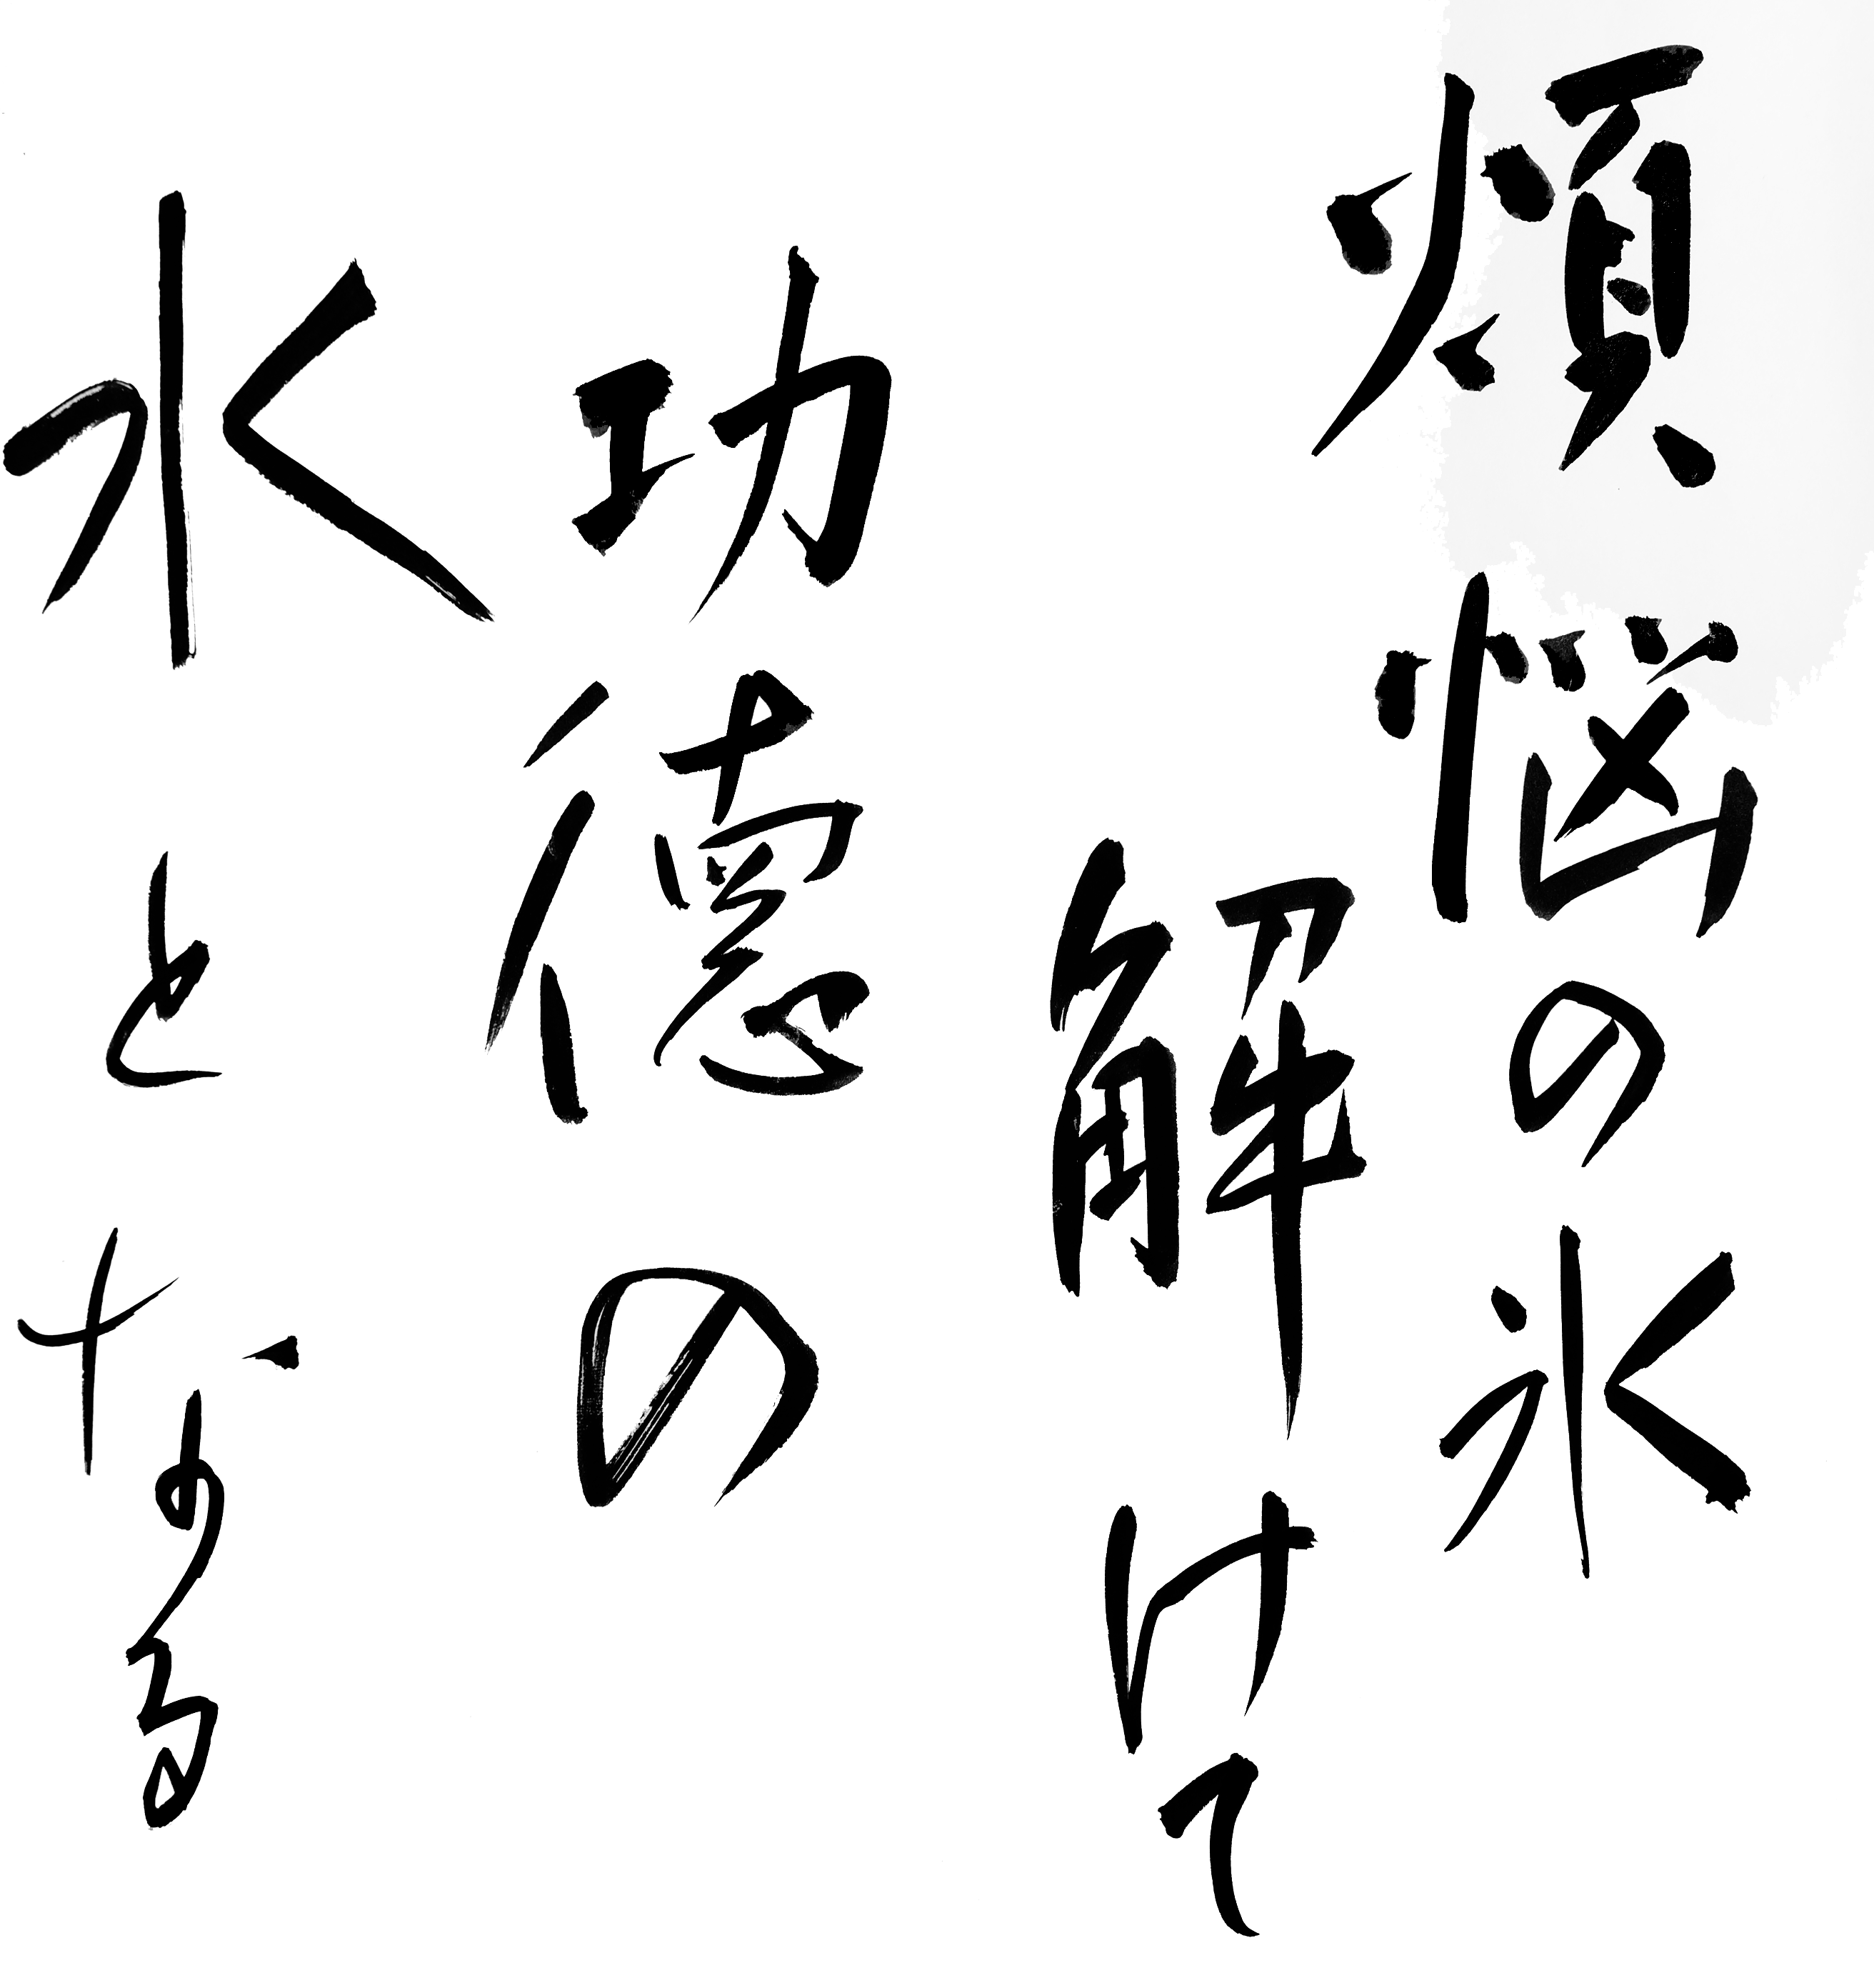 煩悩の氷
解けて
功徳の
水となる